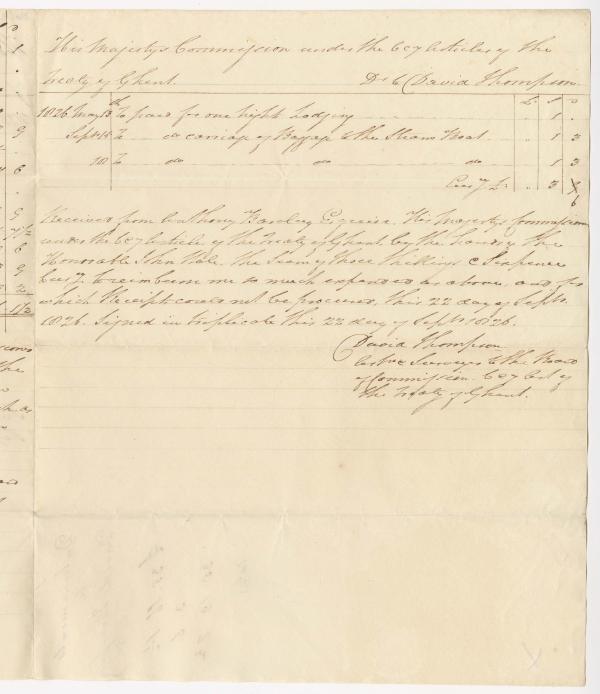 His Majestys Commission under the 6 & 7 Articles of the
Treaty of Ghent. Dr to David Thompson.
£ s d
1826 May 13th To paid for one nights Lodging " 1 "
Septr 15 To do carriage of Baggage to the Steam Boat " 1 3
18 To do do do " 1 3
Curcy £ " 3 6
Received from Anthony Barclay Esquire, His Majestys Commission
under the 6 & 7 Article of the Treaty of Ghent, by the hands of the
Honorable John Hale, the Sum of three Shillings & Sixpence
Curcy to reimburse me so much expended as above, and for
which Receipts could not be procured, this 22 day of Septr
1826. Signed in triplicate this 22 day of Septr 1826.
David Thompson
Astr & Surveyor to the Board
of Commission 6 & 7 Art of
the Treaty of Ghent.